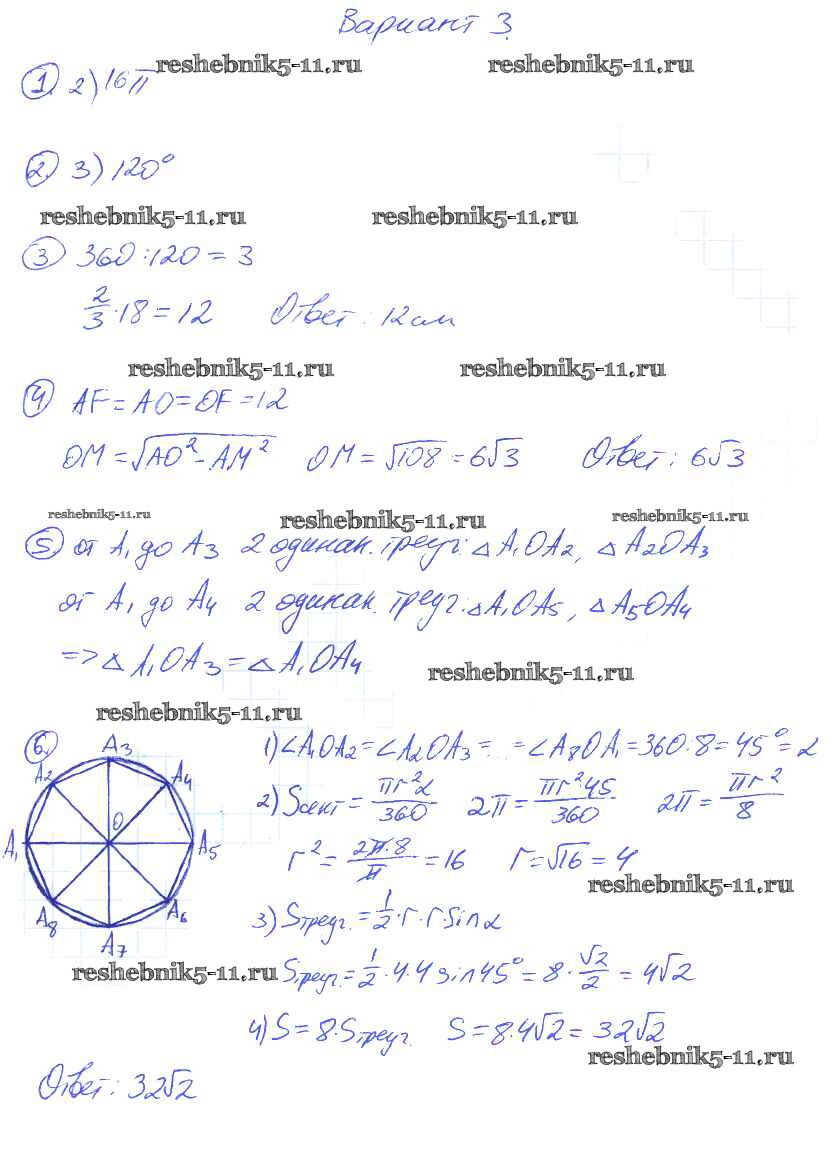 Вариант 3.
reshebnik5-11.ru reshebnik5-11.ru
1. 2) 16π
2. 3) 120°
reshebnik5-11.ru reshebnik5-11.ru
3 360:120 = 3
2/3 · 18 = 12 Ответ: 12 см
reshebnik5-11.ru reshebnik5-11.ru
4 AF = AO = OF = 12
OM = √(AO² - AM²) OM = √108 = 6√3 Ответ: 6√3
reshebnik5-11.ru reshebnik5-11.ru reshebnik5-11.ru
5 от A₁ до A₃ 2 одинак. треуг.: △A₁OA₂, △A₂OA₃
от A₁ до A₄ 2 одинак. треуг.: △A₁OA₅, △A₅OA₄
=> △A₁OA₃ = △A₁OA₄
reshebnik5-11.ru
reshebnik5-11.ru
6.
A₃
A₂ A₄
O
A₁ A₅
A₈ A₆
A₇
1) ∠A₁OA₂ = ∠A₂OA₃ = ... = ∠A₈OA₁ = 360·8 = 45° = α
2) Sсект = πr²α/360 2π = πr²45/360 2π = πr²/8
r² = 2π·8/π = 16 r = √16 = 4
reshebnik5-11.ru
3) Sтреуг. = 1/2 · r · r sin α
reshebnik5-11.ru
Sтреуг. = 1/2 · 4 · 4 sin 45° = 8 · √2/2 = 4√2
4) S = 8 · Sтреуг. S = 8 · 4√2 = 32√2
reshebnik5-11.ru
Ответ: 32√2